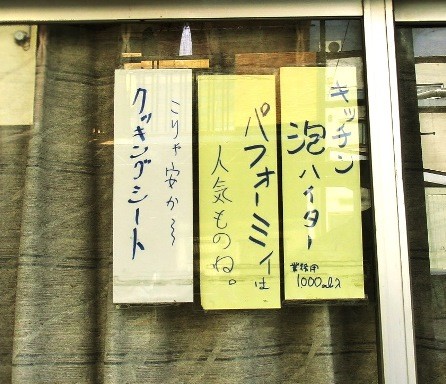 キッチン
泡ハイター
業務用
1000ml入
パフォーミィは
人気ものね。
こりゃ安か〜
クッキングシート